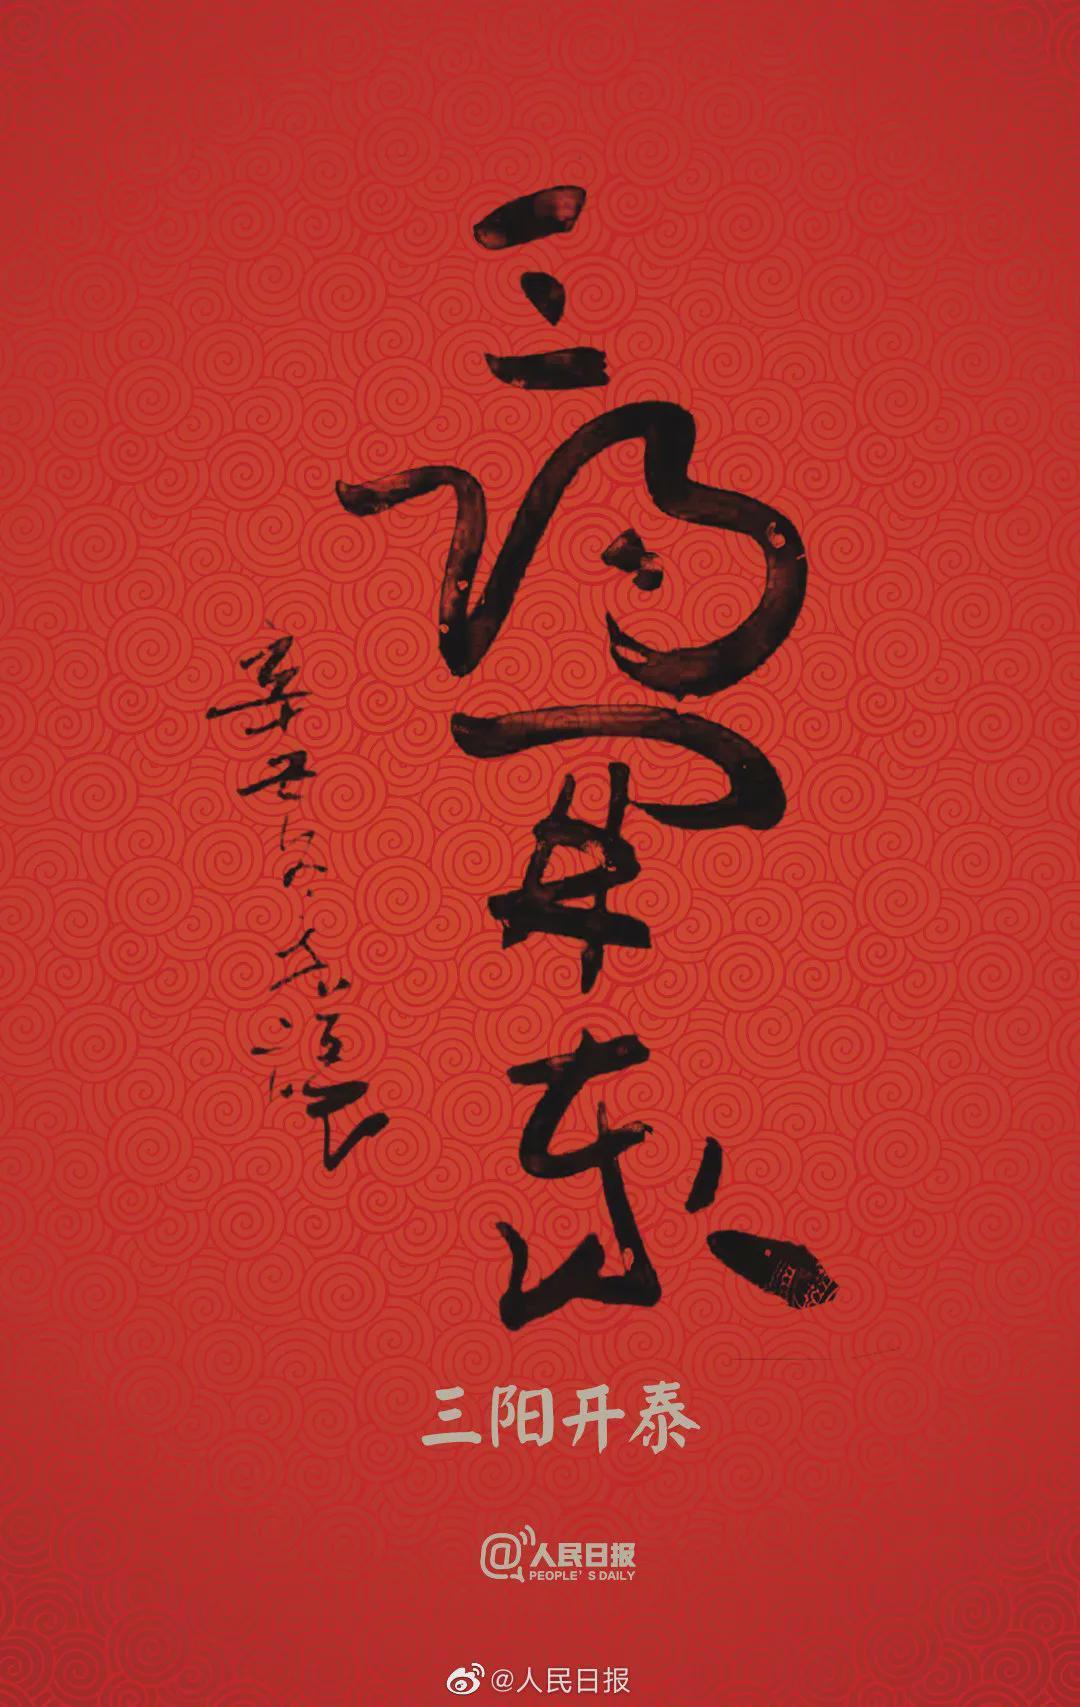 三阳开泰
辛丑
三阳开泰
@人民日报
PEOPLE'S DAILY
@人民日报